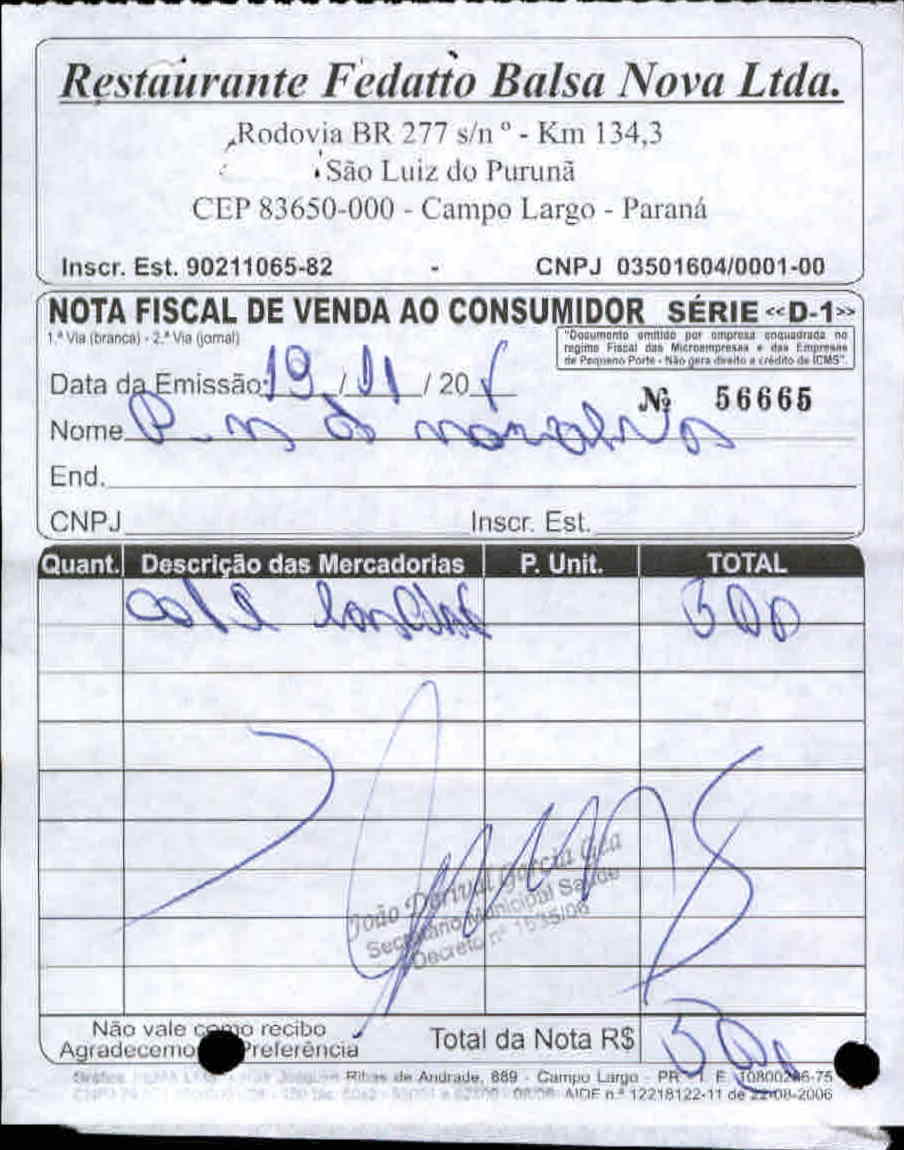 Restaurante Fedatto Balsa Nova Ltda.
Rodovia BR 277 s/n º - Km 134,3
São Luiz do Purunã
CEP 83650-000 - Campo Largo - Paraná
Inscr. Est. 90211065-82 - CNPJ 03501604/0001-00
NOTA FISCAL DE VENDA AO CONSUMIDOR SÉRIE «D-1»
1.ª Via (branca) - 2.ª Via (jornal)
"Documento emitido por empresa enquadrada no
regime Fiscal das Microempresas e das Empresas
de Pequeno Porte - Não gera direito a crédito de ICMS".
Data da Emissão: 19 / 11 / 20
Nº 56665
Nome P. m de
End.
CNPJ Inscr. Est.
Quant. Descrição das Mercadorias P. Unit. TOTAL
300
João Dorival Garcia Gea
Secretário Municipal Saúde
Decreto nº 1535/06
Não vale como recibo
Agradecemo Preferência
Total da Nota R$ 300
Ribas de Andrade, 889 - Campo Largo - PR - I. E. 10800286-75
AIDF n.º 12218122-11 de 22-08-2006